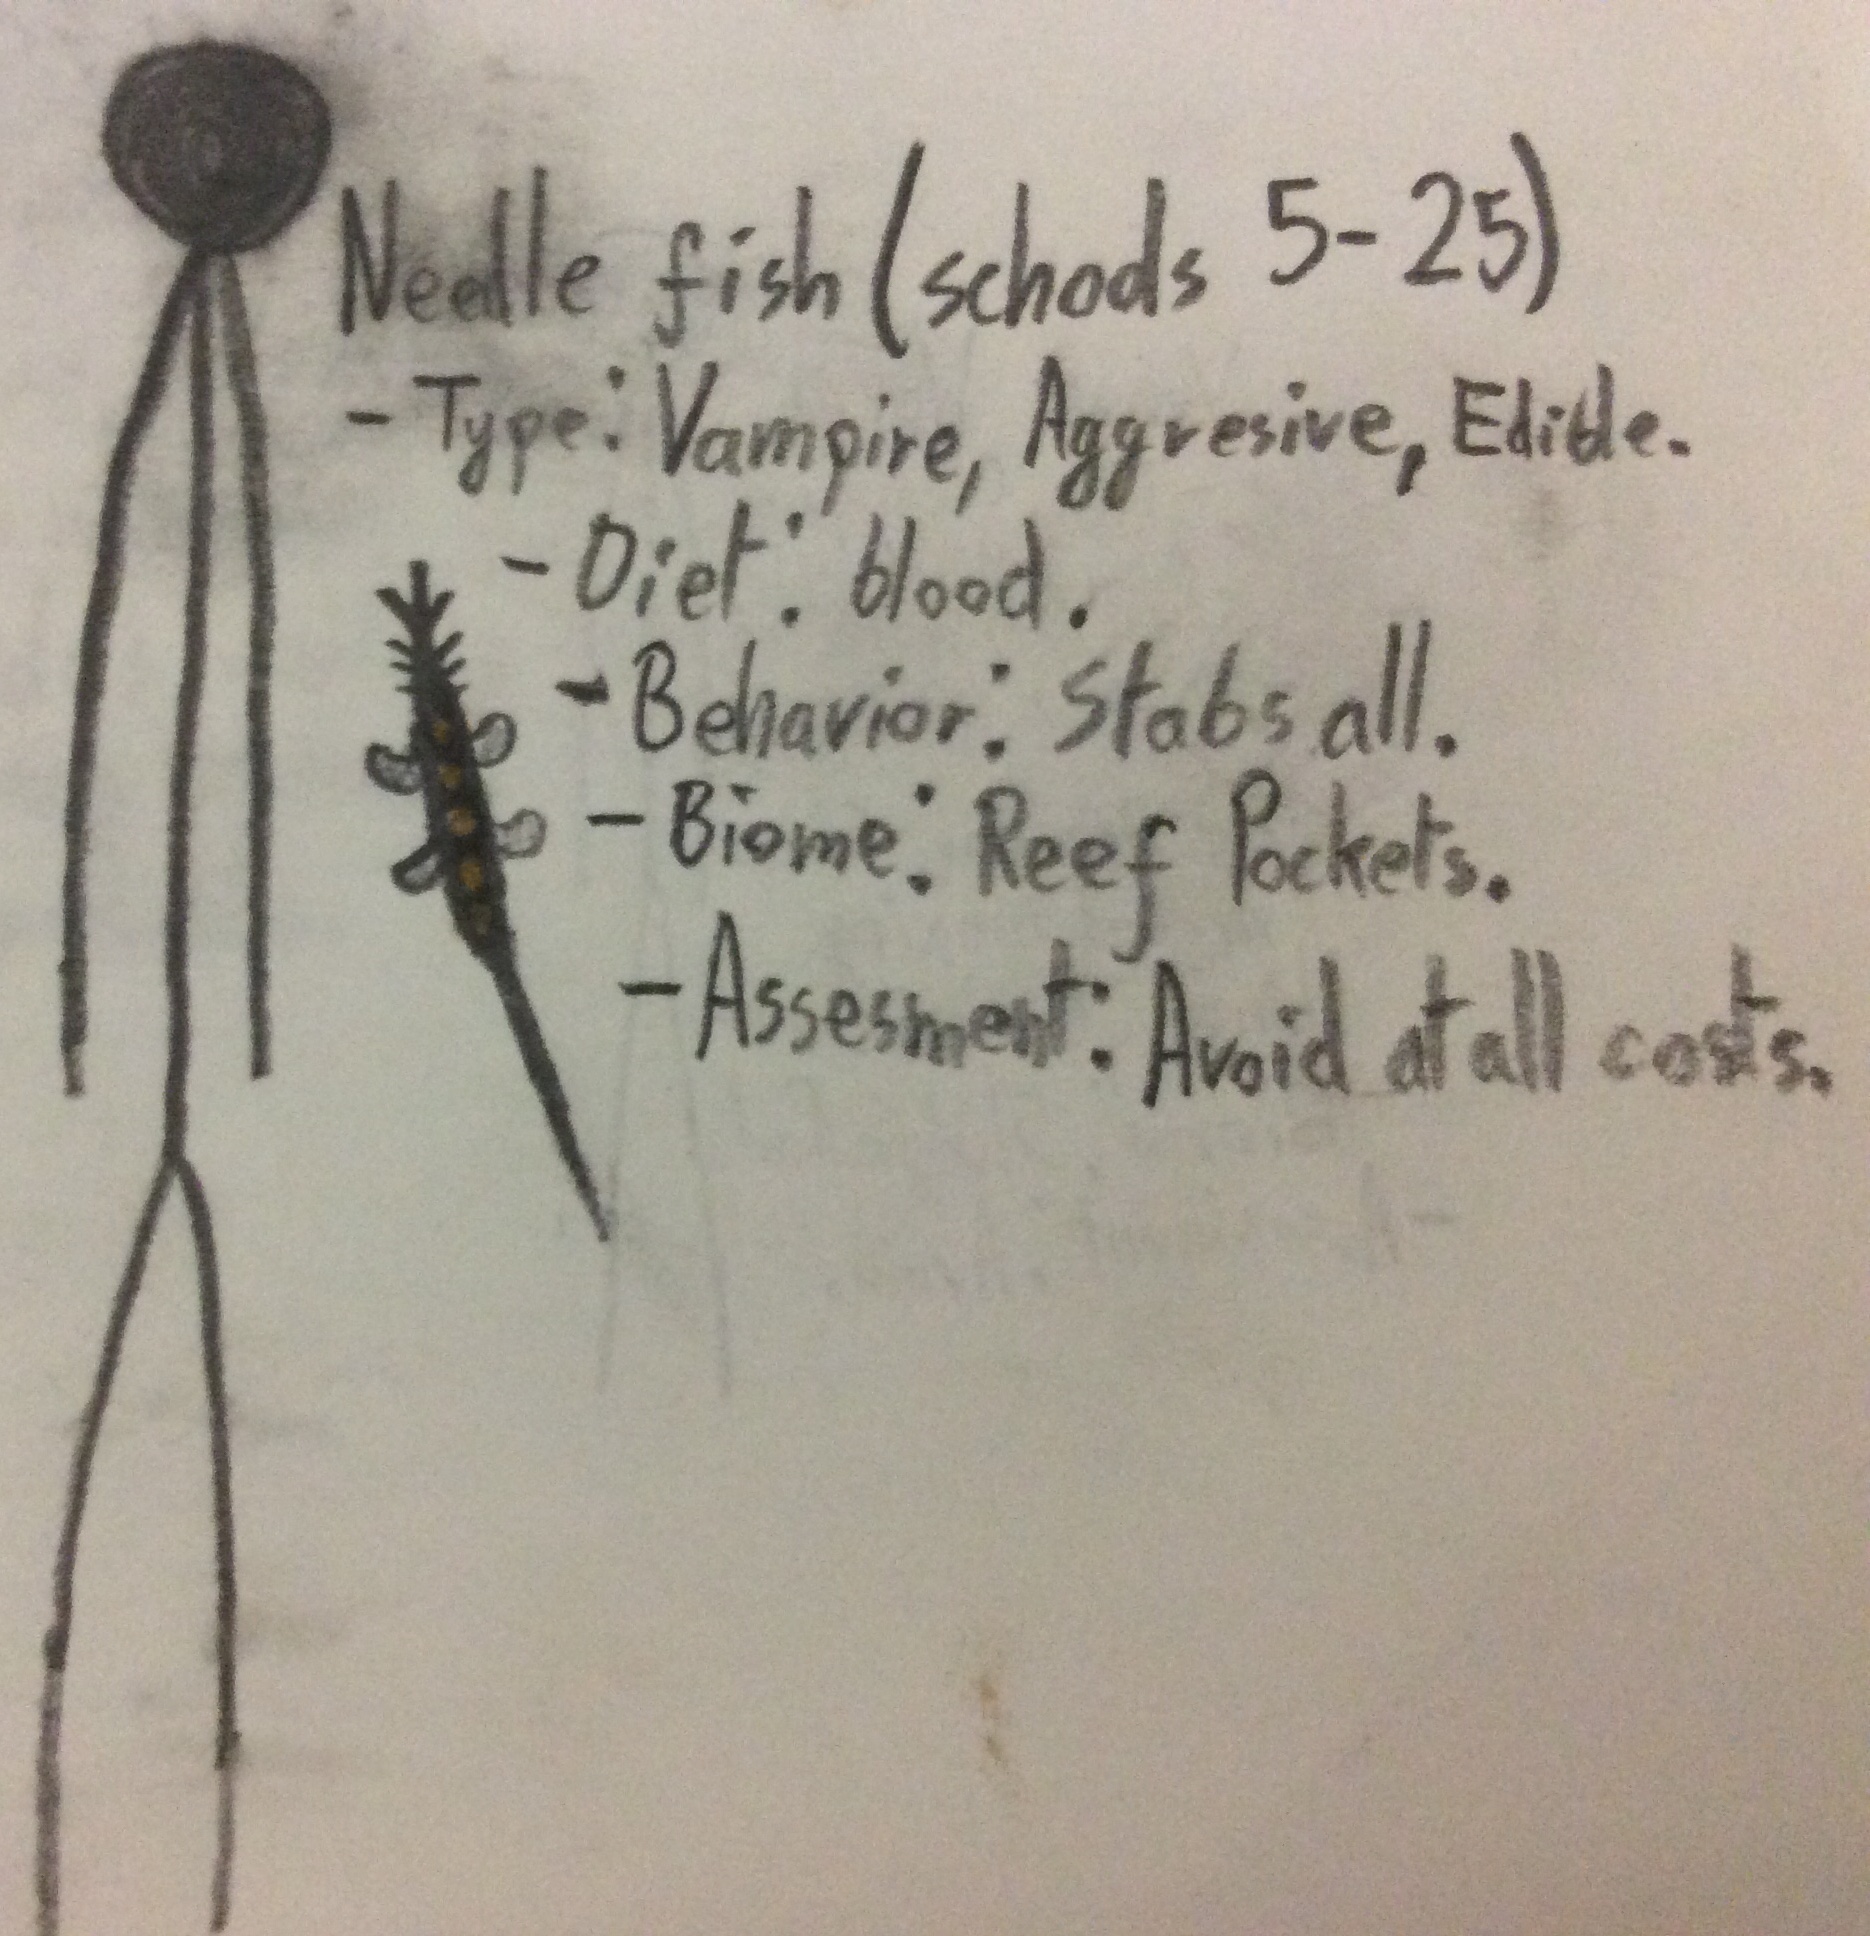 Needle fish (schools 5-25)
- Type: Vampire, Aggresive, Edible.
- Diet: blood.
- Behavior: Stabs all.
- Biome: Reef Pockets.
- Assesment: Avoid at all costs.